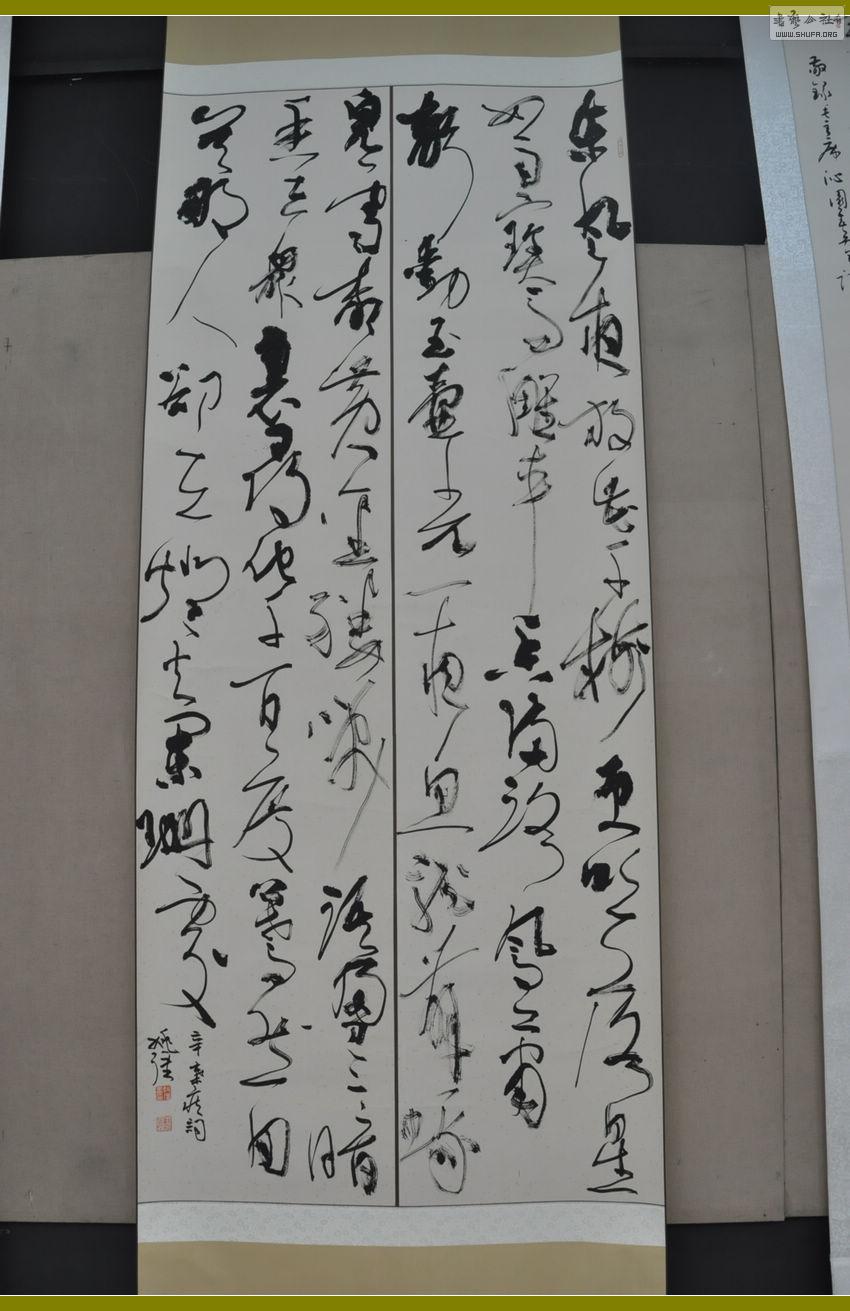 東風夜放花千樹更吹落星
如雨寶馬雕車香滿路鳳簫
聲動玉壺光一夜魚龍舞蛾
兒雪柳黃金縷笑語盈盈暗
香去衆裏尋他千百度驀然回
首那人卻在燈火闌珊處
辛棄疾詞
敬錄毛主席沁園春
書法公社
WWW.SHUFA.ORG